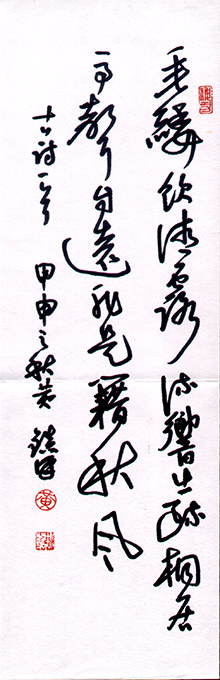 垂緌飲清露流響出疏桐居
高聲自遠非是藉秋風
古詩一首 甲申之秋黃